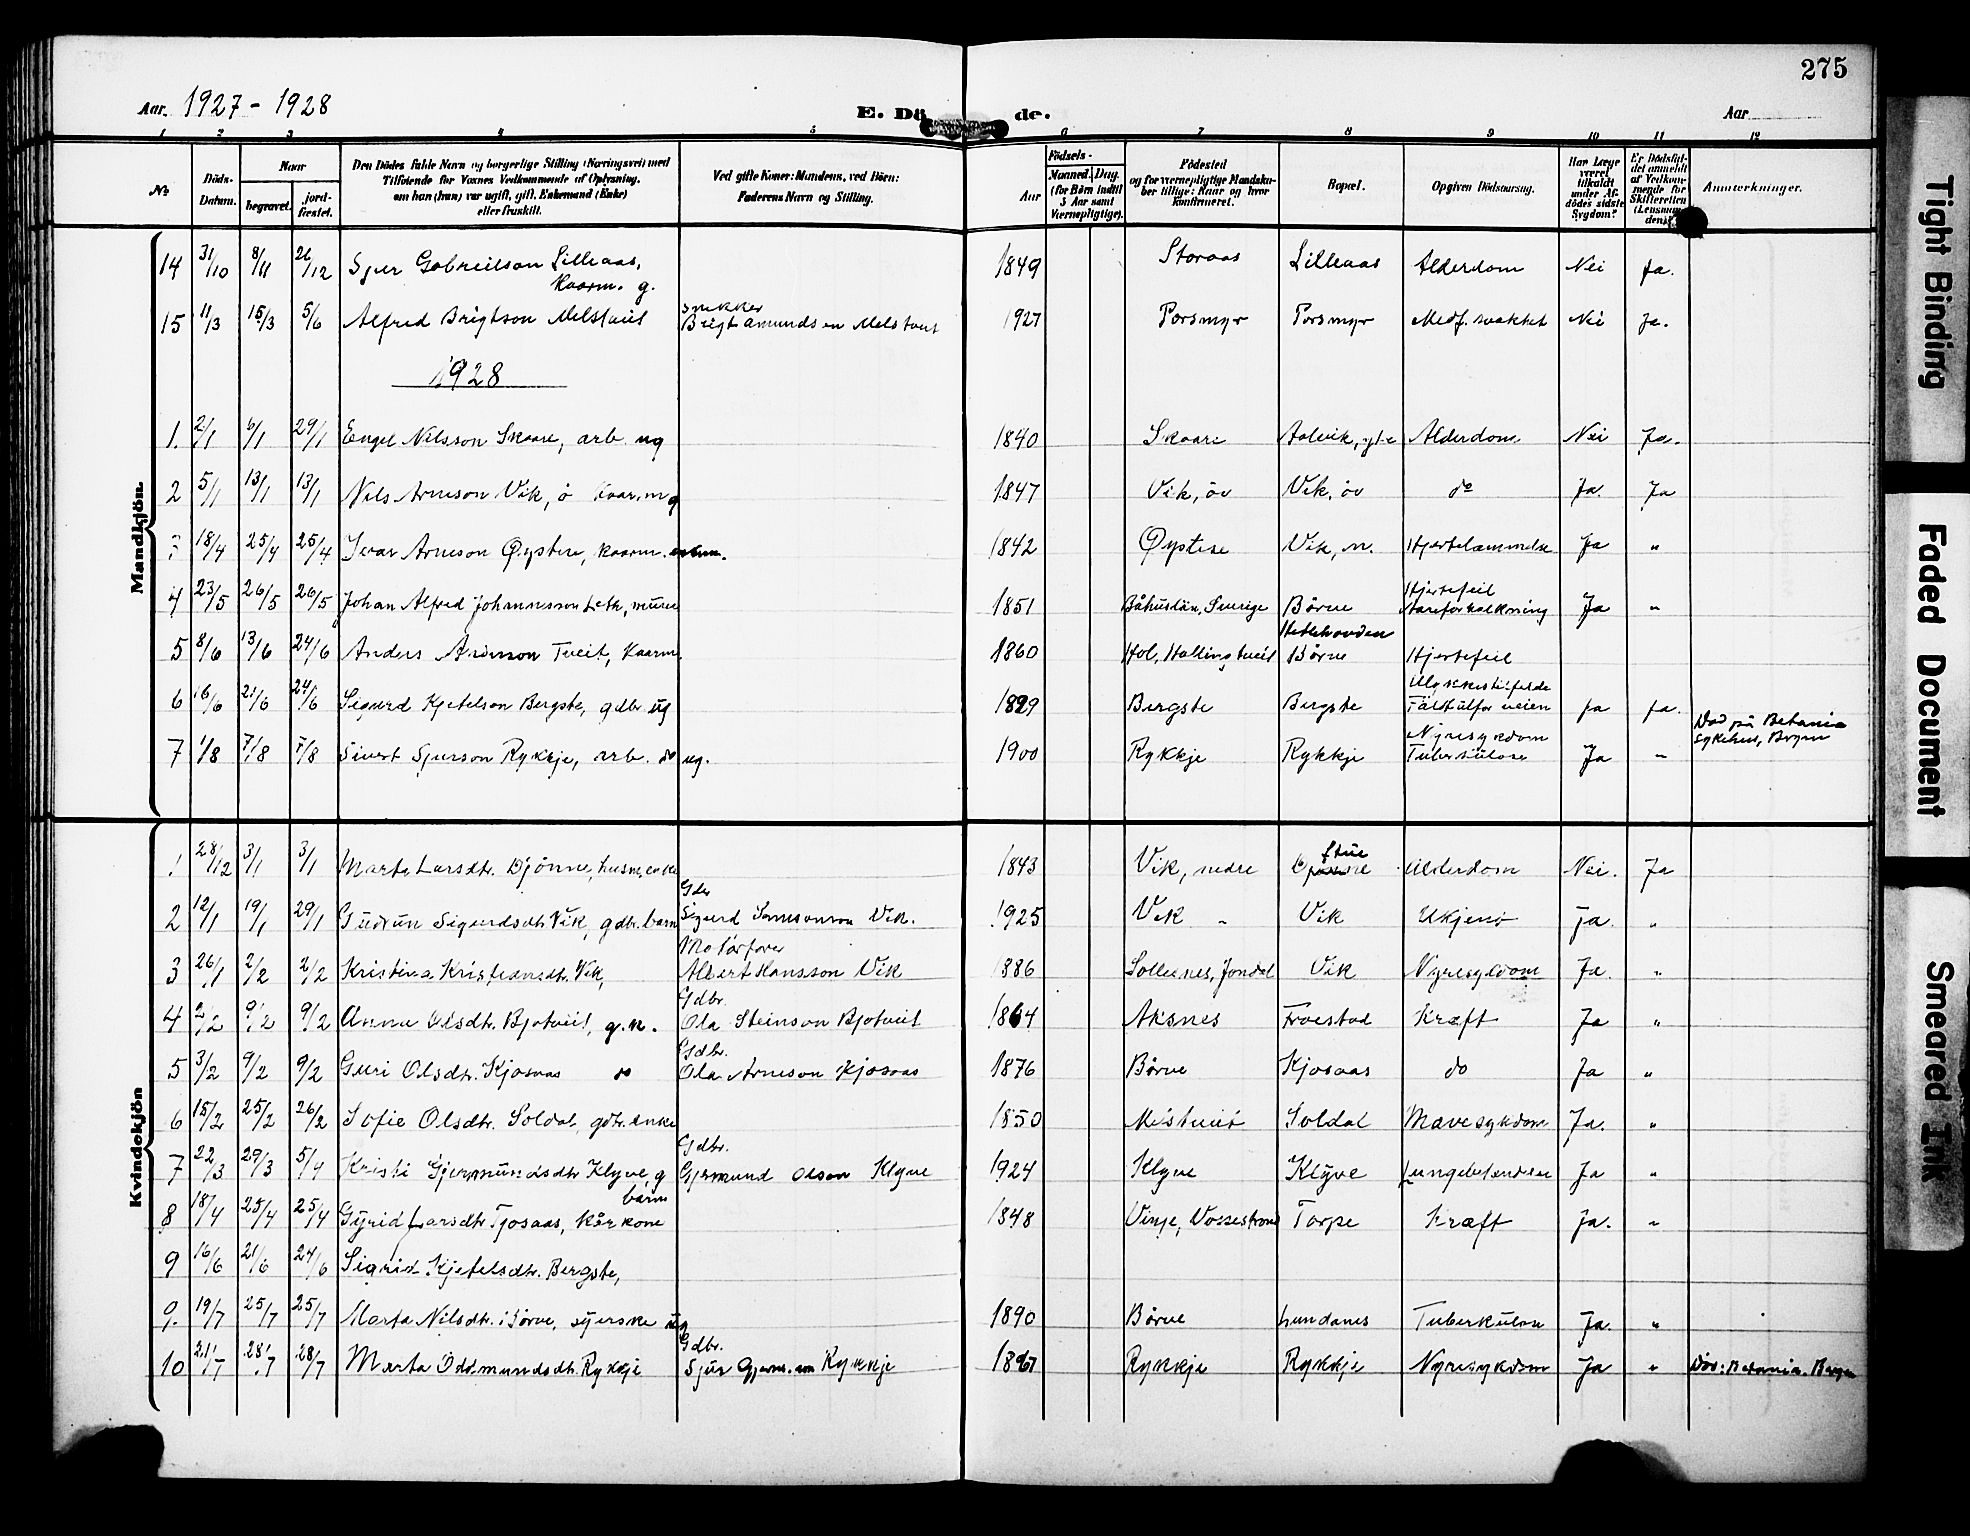 275
Aar. 1927 - 1928 E. Dö de. Aar
1 2 3 4 5 6 7 8 9 10 11 12
№
Döds-Datum.
Naar
begravet.
jord-fæstet.
Den Dödes fulde Navn og borgerlige Stilling (Næringsvei) med
Tilföiende for Voxnes Vedkommende af Oplysning,
om han (hun) var ugift, gift, Enkemand (Enke)
eller fraskilt.
Ved gifte Koner: Mandens, ved Börn:
Faderens Navn og Stilling.
Födsels-
Aar
Maaned. Dag.
(for Börn indtil
3 Aar samt
Værnepligtige).
Födested
og for værnepligtige Mandska-
ber tillige: Naar og hvor
konfirmeret.
Bopæl.
Opgiven Dödsaarsag.
Har Læge
været
tilkaldt
under Af-
dödes sidste
Sygdom?
Er Dödsfal-
det anmeldt
af Vedkom-
mende for
Skifteretten
(Lensman-
den)?
Anmærkninger.
Mandkjön.
14 31/10 8/11 26/12 Sjur Gabrielson Lilleaas, 1849 Storaas Lilleaas Alderdom Nei Ja.
Kaarm. g.
snekker
15 11/3 15/3 5/6 Alfred Brigtson Melstveit Brigt Amundsen Melstveit 1927 Porsmyr Porsmyr Medf. svakhet Nei Ja.
1928
1. 2/1 6/1 29/1 Engel Nilsson Skaare, arb. ug 1840 Skaare Aalvik, ytre Alderdom. Nei Ja.
2 5/1 13/1 13/1 Nils Arneson Vik, ö Kaarm g 1847 Vik, öv Vik, öv do Ja. Ja
3 18/4 25/4 25/4 Ivar Arneson Øystese, kaarm. enkem. 1842 Øystese Vik, n. Hjertelammelse Ja "
Hjertefeil
4 23/5 26/5 26/5 Johan Alfred Johannesson Leth, murer 1851 Båhuslän, Sverige Börve Aareforkalkning Ja "
5 8/6 13/6 24/6 Anders Tveit, Kaarm. 1860 Hol, Hallingtveit Börve Hjertefeil
Ulykkestilfelde
6 16/6 21/6 24/6 Sigurd Kjetelson Bergste, gdbr. ug 1899 Bergste Bergste Falt utfor veien ja ja.
Död på Betania
Nyresykdom sykehus, Bergen
7 1/8 7/8 7/8 Sivert Sjurson Rykkje, arb. do ug. 1900 Rykkje Rykkje Tuberkulose Ja "
Kvindekjön
stue
1 28/12 3/1 3/1 Marta Larsdtr. Djönne, husm. enke 1843 Vik, nedre Alderdom Nei. Ja
Gdbr
2 12/1 19/1 29/1 Gudrun Sigurdsdtr. Vik, gdbr. barn Sigurd Samsonson Vik. 1925 Vik " Vik Ukjend Ja. "
Motorförer
3 26/1 2/2 2/2 Kristina Kristiansdtr. Vik, Albert Hansson Vik 1886 Sollesnes, Jondal Vik Nyresykdom Ja. "
Gdbr.
4 2/2 9/2 9/2 Anna Olsdtr. Bjotveit, g.k. Ola Steinson Bjotveit 1864 Aksnes Froestad Kræft Ja "
Gdbr.
5 3/2 9/2 9/2 Guri Olsdtr. Kjosaas do Ola Arneson Kjosaas 1876 Börve Kjosaas do Ja "
6 15/2 25/2 26/2 Sofie Olsdtr. Soldal, gdbr. enke 1850 Soldal Mavesykdom Ja. "
Gdbr.
7 22/3 29/3 5/4 Kristi Gjermundsdtr. Klyve, g Gjermund Olson Klyve 1924 Klyve Klyve Lungebetendelse Ja "
barn
8 18/4 25/4 25/4 Gyrid Larsdtr. Tjosaas, kårkone 1848 Vinje, Vossestrand Torpe Kræft Ja. "
9 16/6 21/6 24/6 Sigrid Kjetelsdtr. Bergste,
9. 19/7 25/7 25/7 Marta Nilsdtr. Börve, syerske ug 1890 Börve Lundanes Tuberkulose Ja. "
Gdbr.
10 21/7 28/7 28/7 Marta Oddmundsdtr. Rykkje Sjur Rykkje 1867 Rykkje Rykkje Nyresykdom Ja " Död: Betania. Bergen
Tight Binding
Faded Document
Smeared Ink